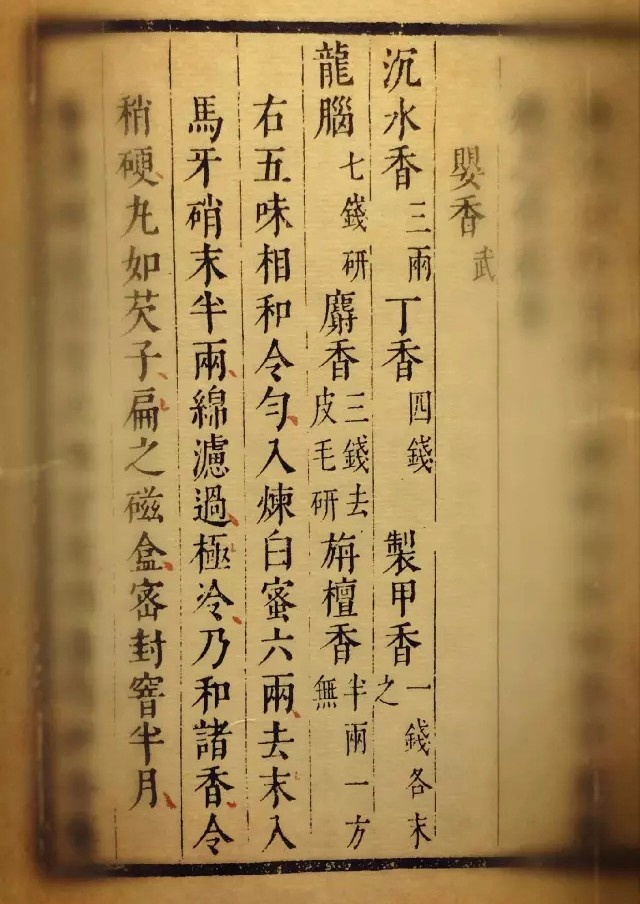 嬰香武
沉水香三兩丁香四錢製甲香一錢各末之
龍腦七錢研麝香三錢去皮毛研旃檀香半兩一方無
右五味相和令勻入煉白蜜六兩去末入
馬牙硝末半兩綿濾過極冷乃和諸香令
稍硬丸如芡子扁之磁盒密封窨半月